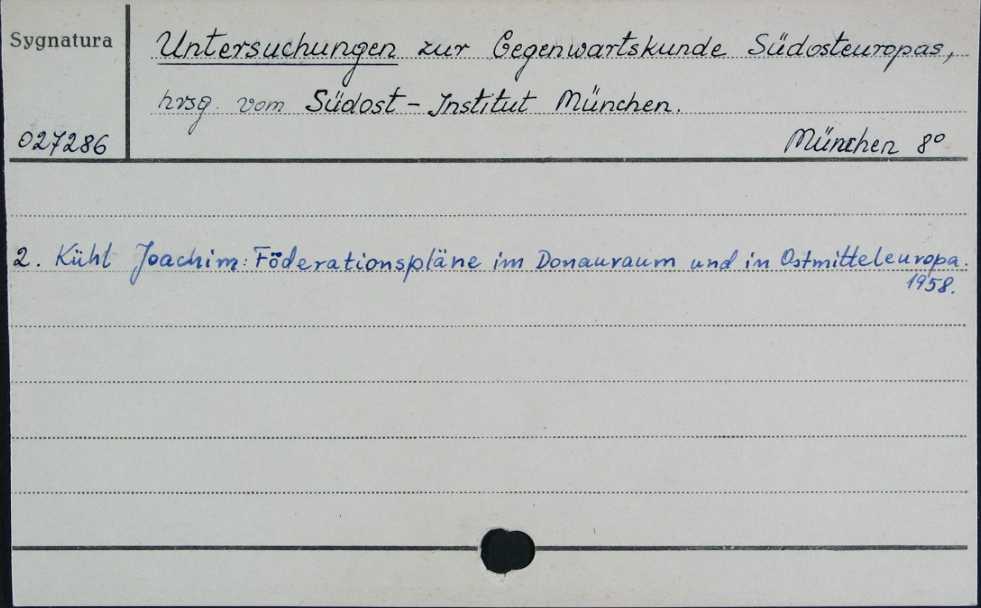 Sygnatura
Untersuchungen zur Gegenwartskunde Südosteuropas,
hrsg. vom Südost-Institut München.
027286
München 8°
2. Kühl Joachim: Föderationspläne im Donauraum und in Ostmitteleuropa.
1958.